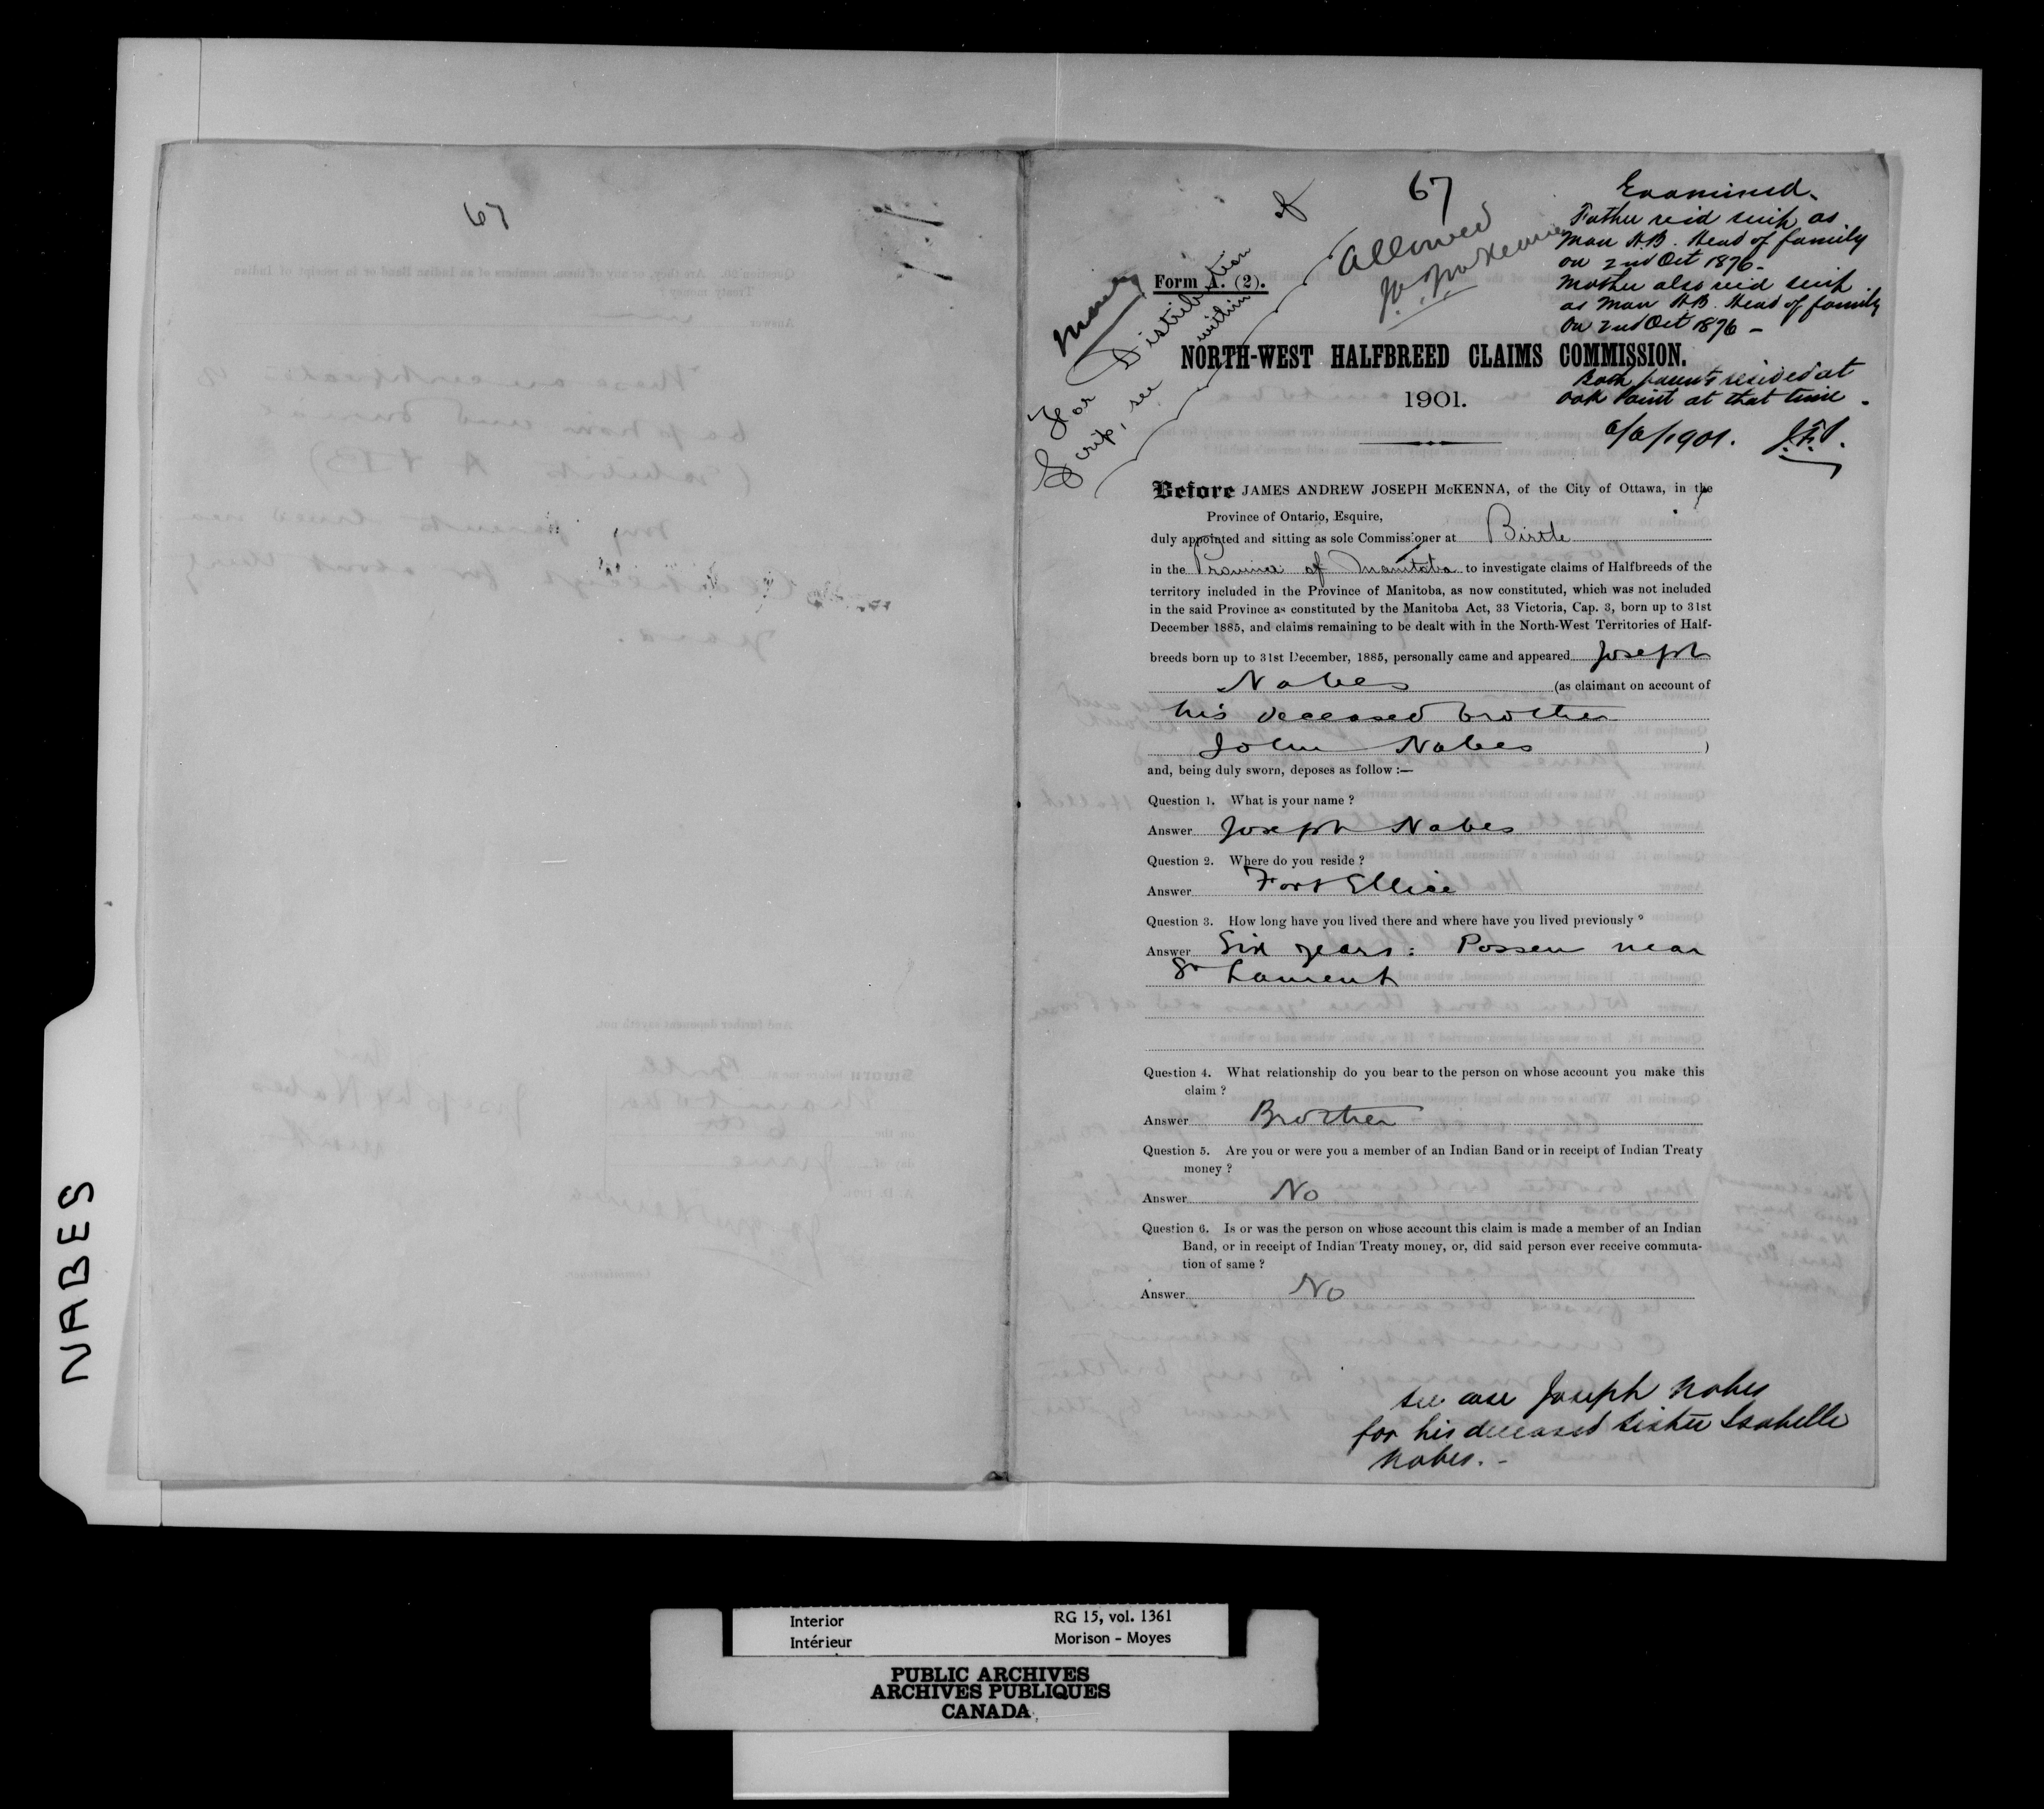 67
67
Examined.
Father rec'd scrip as
Man H.B. Head of family
on 2nd Oct 1876 -
Mother also rec'd scrip
as Man H.B. Head of family
on 2nd Oct 1876 -
Both parents resided at
Oak Point at that time.
6/6/1901. J.E.P.
Allowed
J.A.J. McKenna
Money
For Distribution of
Scrip, see within
Form A. (2).
NORTH-WEST HALFBREED CLAIMS COMMISSION.
1901.
Before JAMES ANDREW JOSEPH McKENNA, of the City of Ottawa, in the
Province of Ontario, Esquire,
duly appointed and sitting as sole Commissioner at Birtle
in the Province of Manitoba to investigate claims of Halfbreeds of the
territory included in the Province of Manitoba, as now constituted, which was not included
in the said Province as constituted by the Manitoba Act, 33 Victoria, Cap. 3, born up to 31st
December 1885, and claims remaining to be dealt with in the North-West Territories of Half-
breeds born up to 31st December, 1885, personally came and appeared Joseph
Nabes (as claimant on account of
his deceased brother
John Nabes )
and, being duly sworn, deposes as follow :—
Question 1. What is your name ?
Answer Joseph Nabes
Question 2. Where do you reside ?
Answer Fort Ellice
Question 3. How long have you lived there and where have you lived previously ?
Answer Six years : Posseu near
St Laurent
Question 4. What relationship do you bear to the person on whose account you make this
claim ?
Answer Brother
Question 5. Are you or were you a member of an Indian Band or in receipt of Indian Treaty
money ?
Answer No
Question 6. Is or was the person on whose account this claim is made a member of an Indian
Band, or in receipt of Indian Treaty money, or, did said person ever receive commuta-
tion of same ?
Answer No
See case Joseph Nabes
for his deceased sister Isabelle
Nabes. -
NABES
Interior RG 15, vol. 1361
Intérieur Morison - Moyes
PUBLIC ARCHIVES
ARCHIVES PUBLIQUES
CANADA